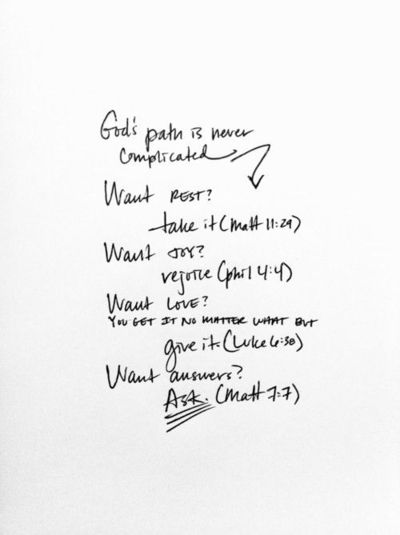 God's path is never
complicated
Want REST?
take it (Matt 11:29)
Want JOY?
rejoice (phil 4:4)
Want LOVE?
YOU GET IT NO MATTER WHAT BUT
give it. (Luke 6:38)
Want answers?
ASK. (Matt 7:7)